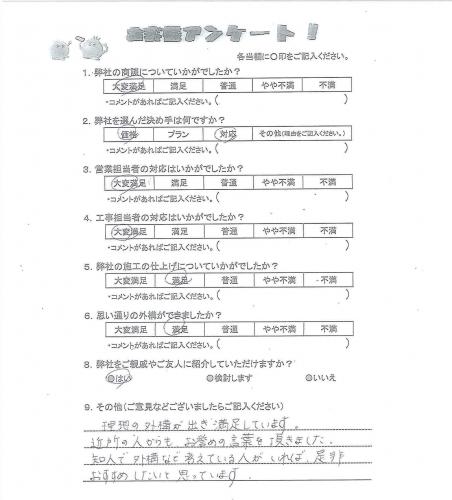 お客様アンケート！
各当欄に○印をご記入ください。
1. 弊社の商談についていかがでしたか？
大変満足 満足 普通 やや不満 不満
・コメントがあればご記入ください。( )
2. 弊社を選んだ決め手は何ですか？
価格 プラン 対応 その他(理由をご記入ください。)
・コメントがあればご記入ください。( )
3. 営業担当者の対応はいかがでしたか？
大変満足 満足 普通 やや不満 不満
・コメントがあればご記入ください。( )
4. 工事担当者の対応はいかがでしたか？
大変満足 満足 普通 やや不満 不満
・コメントがあればご記入ください。( )
5. 弊社の施工の仕上げについていかがでしたか？
大変満足 満足 普通 やや不満 不満
・コメントがあればご記入ください。( )
6. 思い通りの外構ができましたか？
大変満足 満足 普通 やや不満 不満
・コメントがあればご記入ください。( )
8. 弊社をご親戚やご友人に紹介していただけますか？
◎はい ◎検討します ◎いいえ
9. その他(ご意見などございましたらご記入ください)
理想の外構が出き満足しています。
近所の人からも お誉めの言葉を頂きました。
知人で外構など考えている人がいれば、是非
おすすめしたいと思っています。